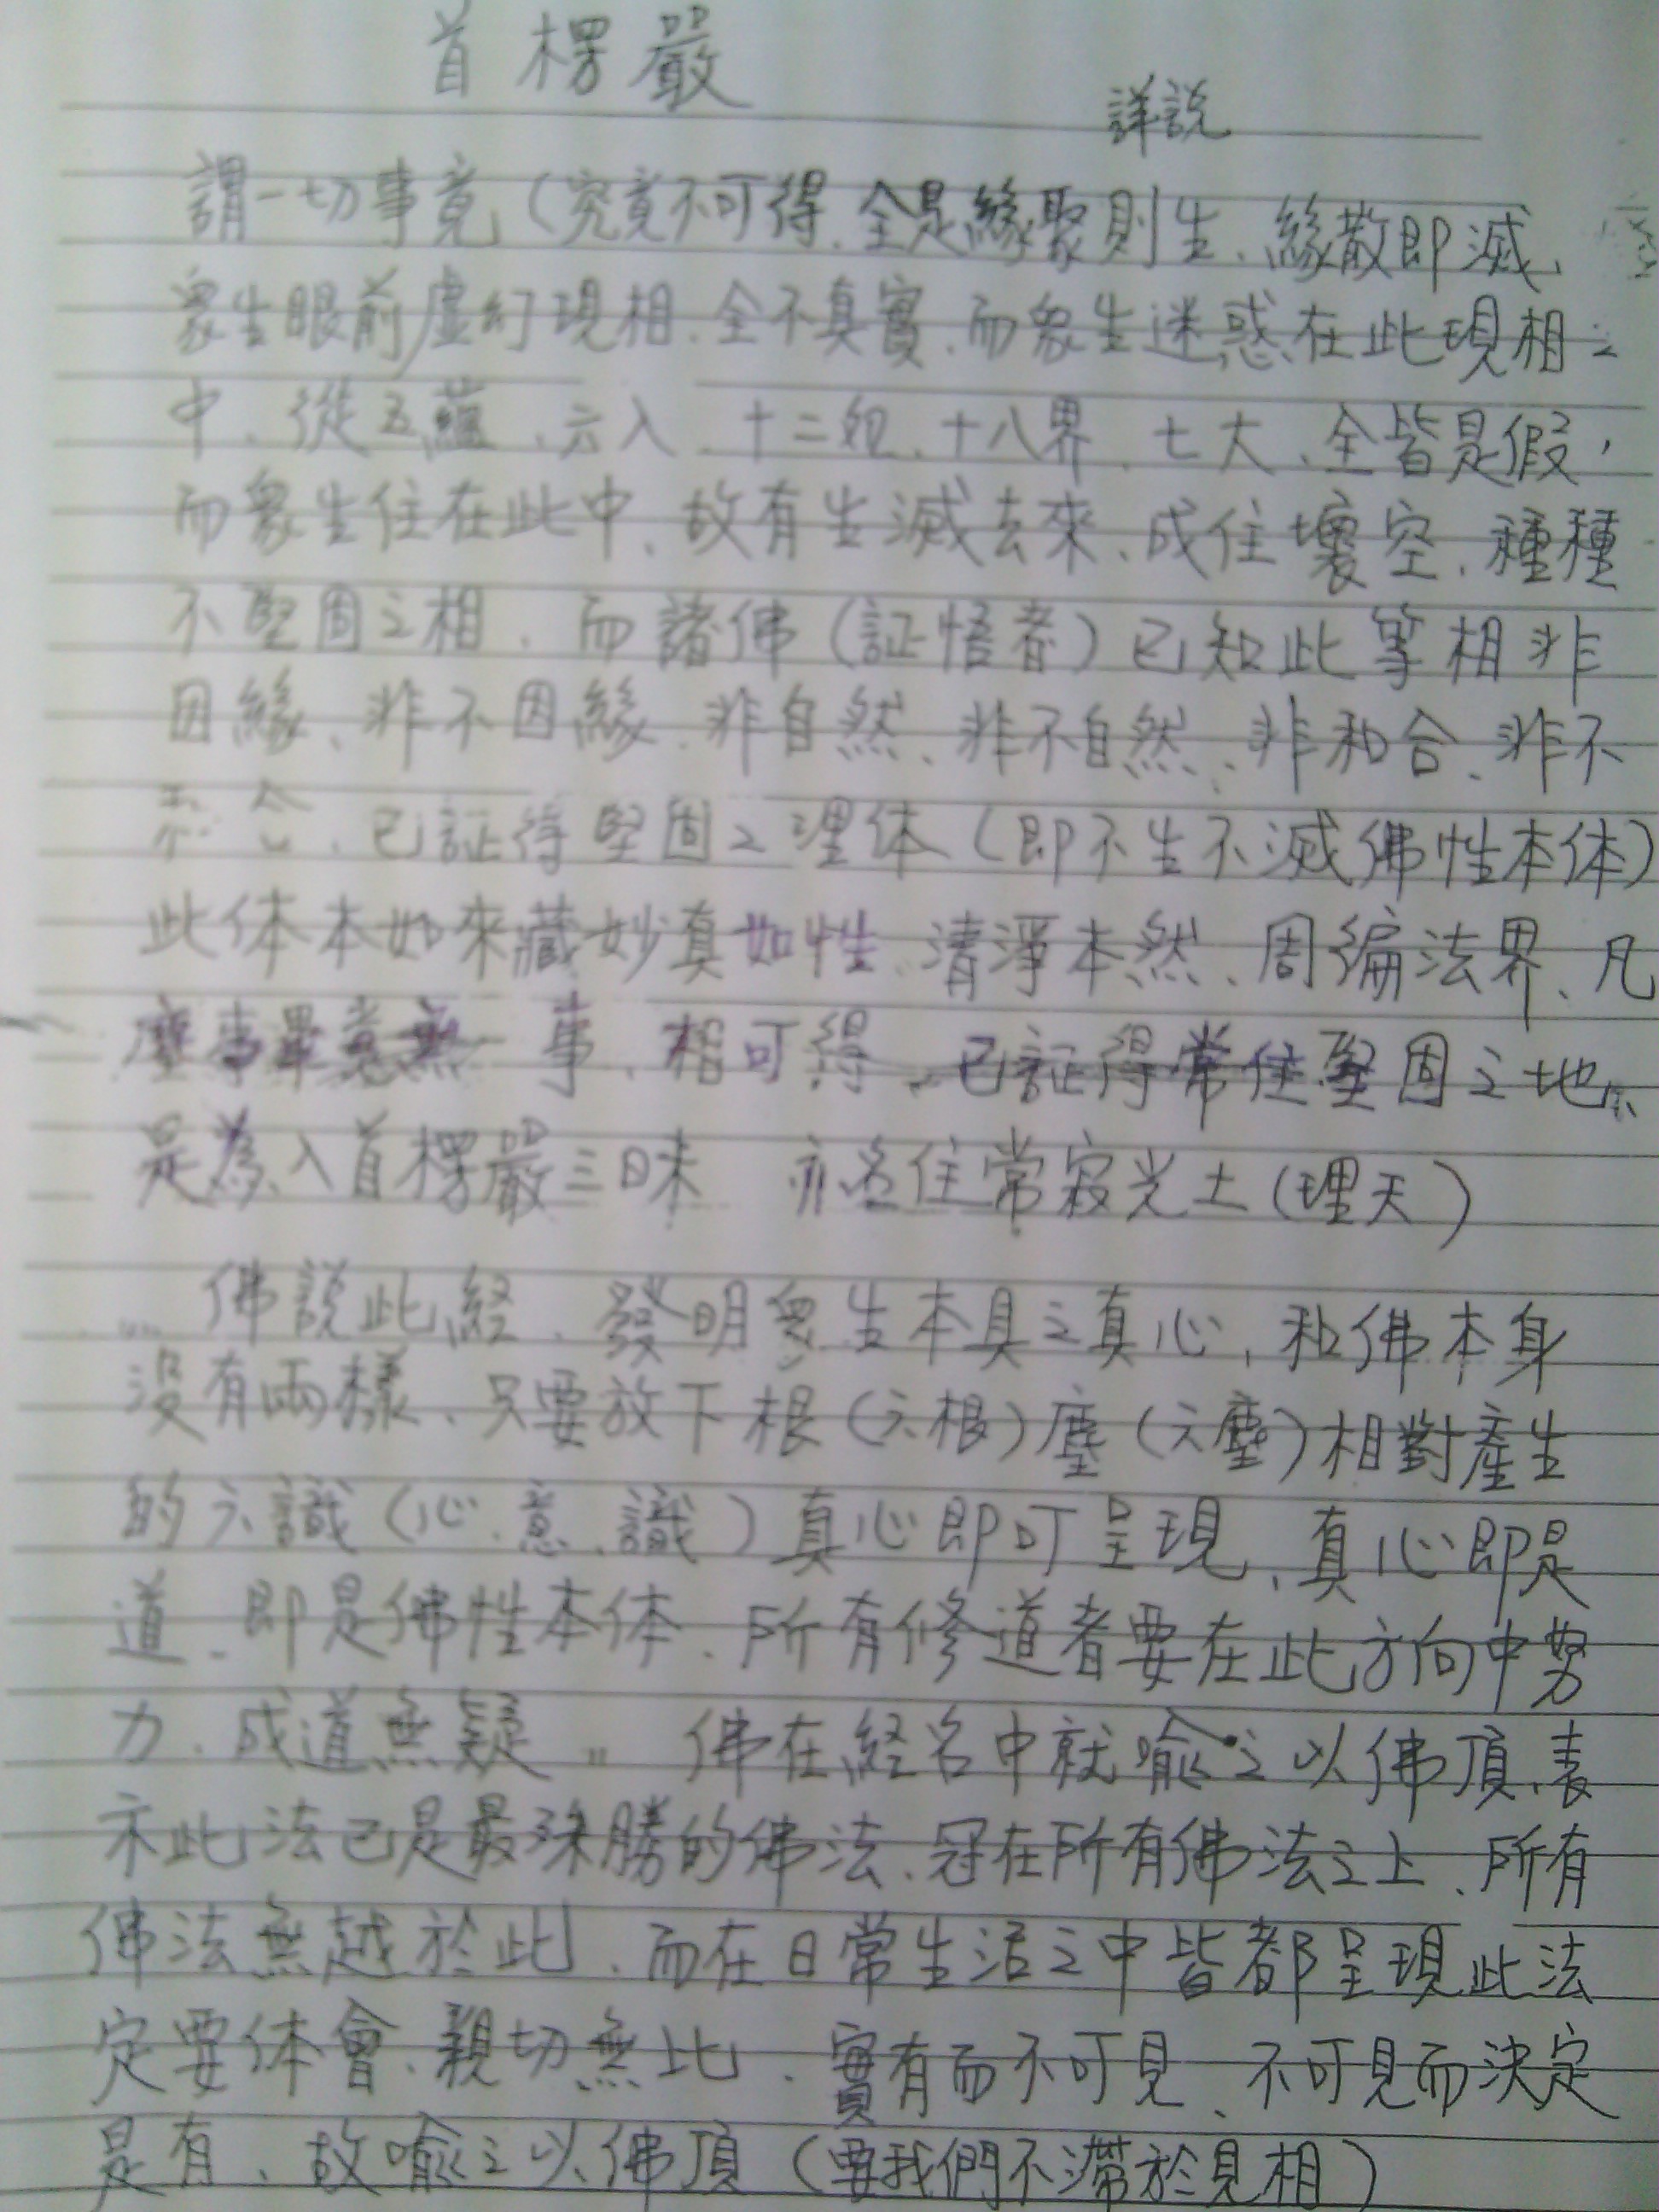 首楞嚴
詳説
謂一切事竟（究竟不可得、全是緣聚則生、緣散即滅、
衆生眼前虛幻現相、全不真實、而衆生迷惑在此現相之
中、從五蘊、六入、十二処、十八界、七大、全皆是假，
而衆生住在此中、故有生滅去來、成住壞空、種種
不堅固之相、而諸佛（証悟者）已知此等相非
因緣、非不因緣、非自然、非不自然、非和合、非不
和合、已証得堅固之理体（即不生不滅佛性本体）
此体本如來藏妙真如性、清淨本然、周徧法界、凡
塵事畢竟無一事、相可得、已証得常住堅固之地、
是為入首楞嚴三昧　亦名住常寂光土（理天）
佛説此経、發明衆生本具之真心，和佛本身
沒有兩樣、只要放下根（六根）塵（六塵）相對產生
的六識（心、意、識）真心即可呈現、真心即是
道、即是佛性本体、所有修道者要在此方向中努
力、成道無疑。佛在経名中就喻之以佛頂、表
示此法已是最殊勝的佛法、冠在所有佛法之上、所有
佛法無越於此、而在日常生活之中皆都呈現此法
定要体會、親切無比、實有而不可見、不可見而決定
是有、故喻之以佛頂（要我們不滯於見相）